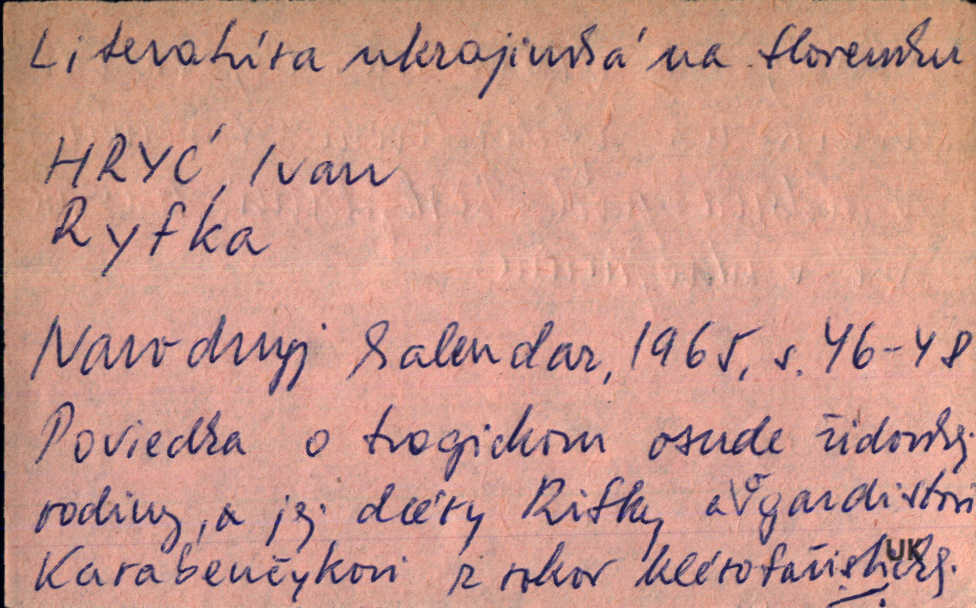 Literatúra ukrajinská na Slovensku
HRYĆ, Ivan
Ryfka
Narodnyj kalendar, 1965, s. 46-48
Poviedka o tragickom osude židovskej
rodiny, a jej dcéry Rifky a gardistovi
Karabenčykovi z rokov
UK